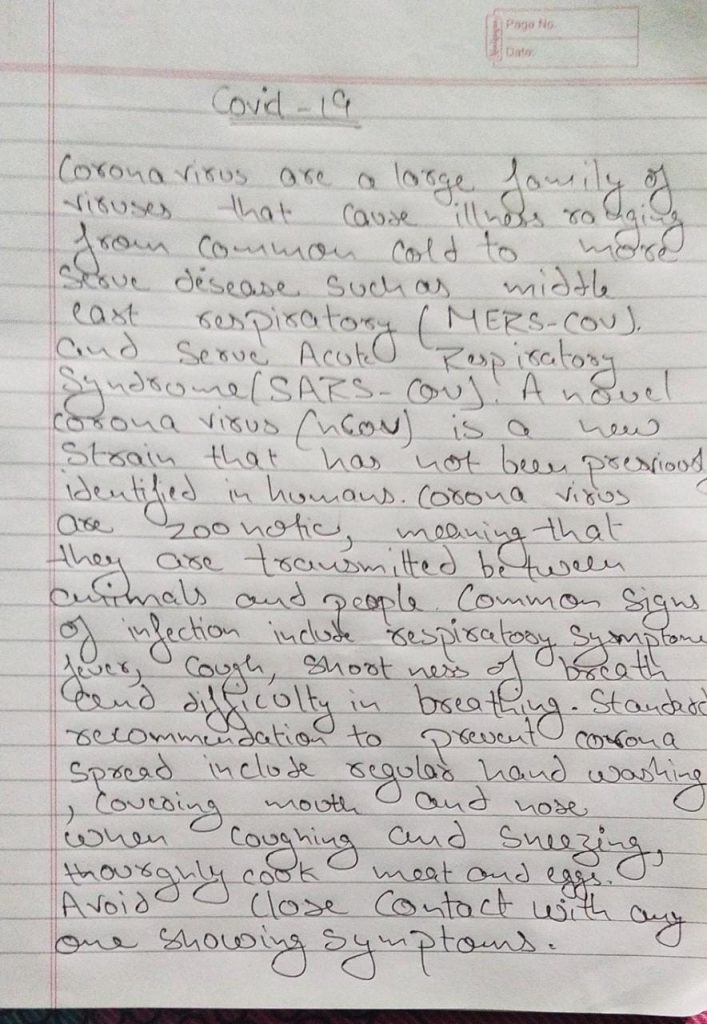 Page No.
Date:
Covid-19
Corona virus are a large family of
viruses that cause illness ranging
from common cold to more
serve disease such as middle
east respiratory (MERS-COV).
and Serve Acute Respiratory
Syndrome (SARS-COV). A novel
corona virus (nCOV) is a new
strain that has not been previous
identified in humans. Corona virus
are zoonotic, meaning that
they are transmitted between
animals and people. Common signs
of infection include respiratory symptoms
fever, cough, shortness of breath
and difficulty in breathing. Standard
recommendation to prevent corona
spread include regular hand washing
, covering mouth and nose
when coughing and sneezing,
thourghly cook meat and eggs.
Avoid close contact with any
one showing symptoms.